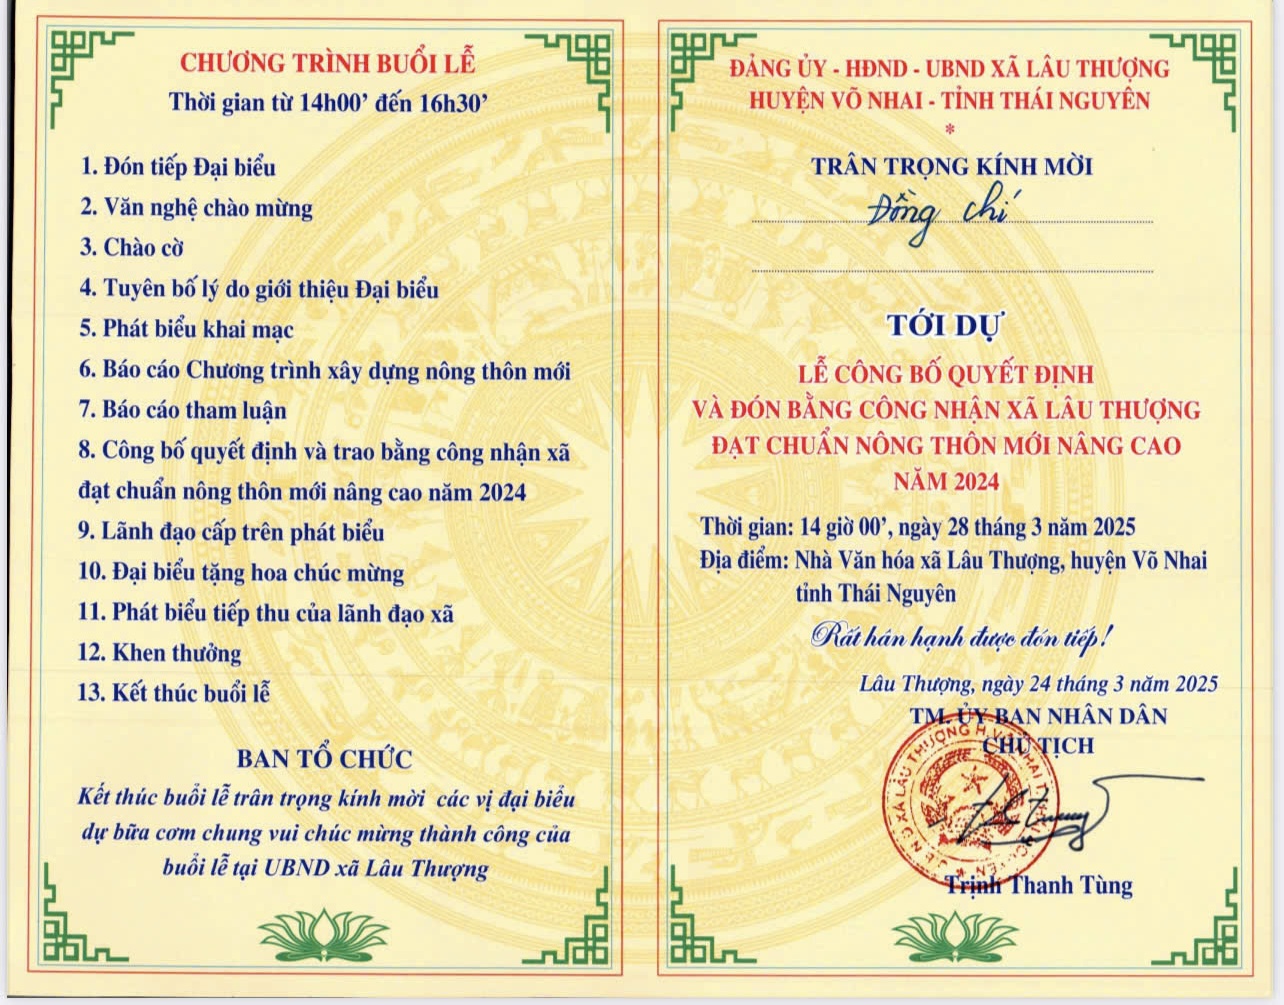 CHƯƠNG TRÌNH BUỔI LỄ
Thời gian từ 14h00’ đến 16h30’
1. Đón tiếp Đại biểu
2. Văn nghệ chào mừng
3. Chào cờ
4. Tuyên bố lý do giới thiệu Đại biểu
5. Phát biểu khai mạc
6. Báo cáo Chương trình xây dựng nông thôn mới
7. Báo cáo tham luận
8. Công bố quyết định và trao bằng công nhận xã
đạt chuẩn nông thôn mới nâng cao năm 2024
9. Lãnh đạo cấp trên phát biểu
10. Đại biểu tặng hoa chúc mừng
11. Phát biểu tiếp thu của lãnh đạo xã
12. Khen thưởng
13. Kết thúc buổi lễ
BAN TỔ CHỨC
Kết thúc buổi lễ trân trọng kính mời các vị đại biểu
dự bữa cơm chung vui chúc mừng thành công của
buổi lễ tại UBND xã Lâu Thượng
ĐẢNG ỦY - HĐND - UBND XÃ LÂU THƯỢNG
HUYỆN VÕ NHAI - TỈNH THÁI NGUYÊN
*
TRÂN TRỌNG KÍNH MỜI
Đồng chí
TỚI DỰ
LỄ CÔNG BỐ QUYẾT ĐỊNH
VÀ ĐÓN BẰNG CÔNG NHẬN XÃ LÂU THƯỢNG
ĐẠT CHUẨN NÔNG THÔN MỚI NÂNG CAO
NĂM 2024
Thời gian: 14 giờ 00’, ngày 28 tháng 3 năm 2025
Địa điểm: Nhà Văn hóa xã Lâu Thượng, huyện Võ Nhai
tỉnh Thái Nguyên
Rất hân hạnh được đón tiếp!
Lâu Thượng, ngày 24 tháng 3 năm 2025
TM. ỦY BAN NHÂN DÂN
CHỦ TỊCH
Trịnh Thanh Tùng